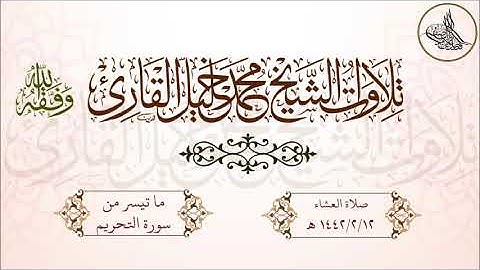 تلاوات الشيخ محمد خليل القارئ
وفقه الله
صلاة العشاء
١٤٤٢/٢/١٢ هـ
ما تيسر من
سورة التحريم